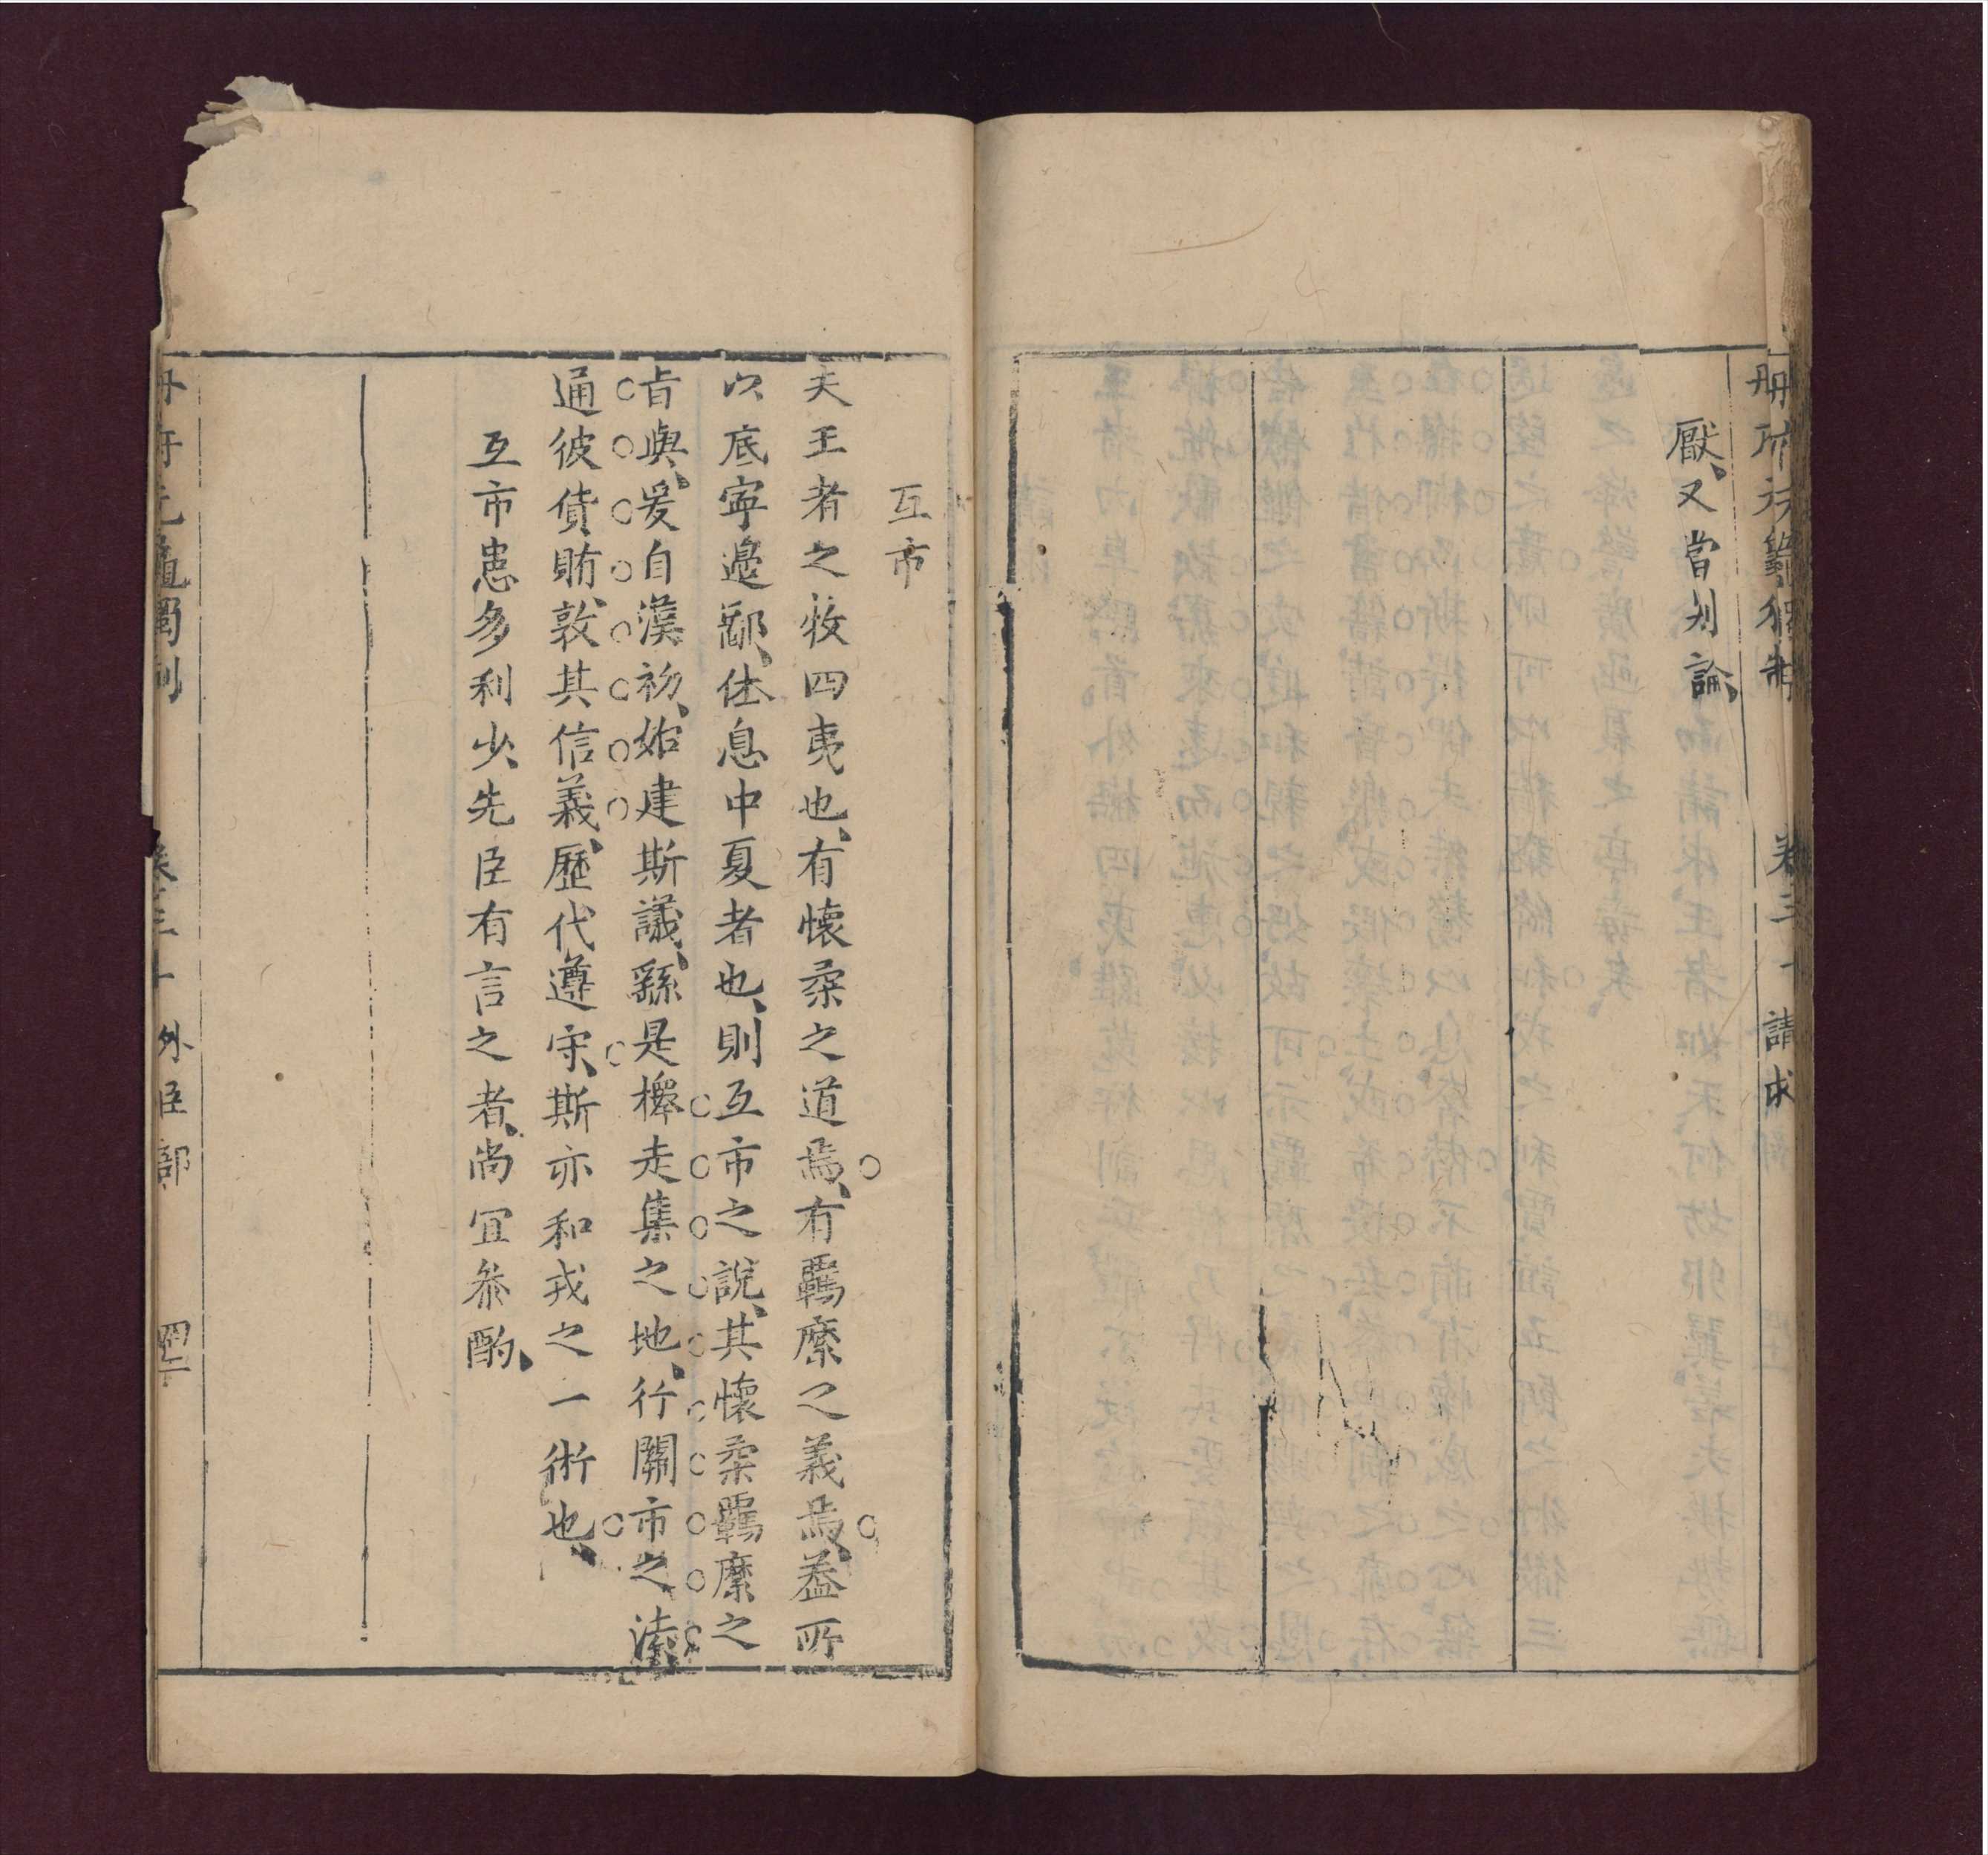 卷三十 請求
厭、又當別論、
互市
夫王者之牧四夷也、有懷柔之道焉、有羈縻之義焉、葢所
以底寧邊鄙、休息中夏者也、則互市之說、其懷柔羈縻之
旨與、爰自漢初、始建斯議、繇是擇走集之地、行關市之法、
通彼貨賄、敦其信義、歷代遵守、斯亦和戎之一術也、
互市患多利少先臣有言之者、尚宜叅酌、
外臣部